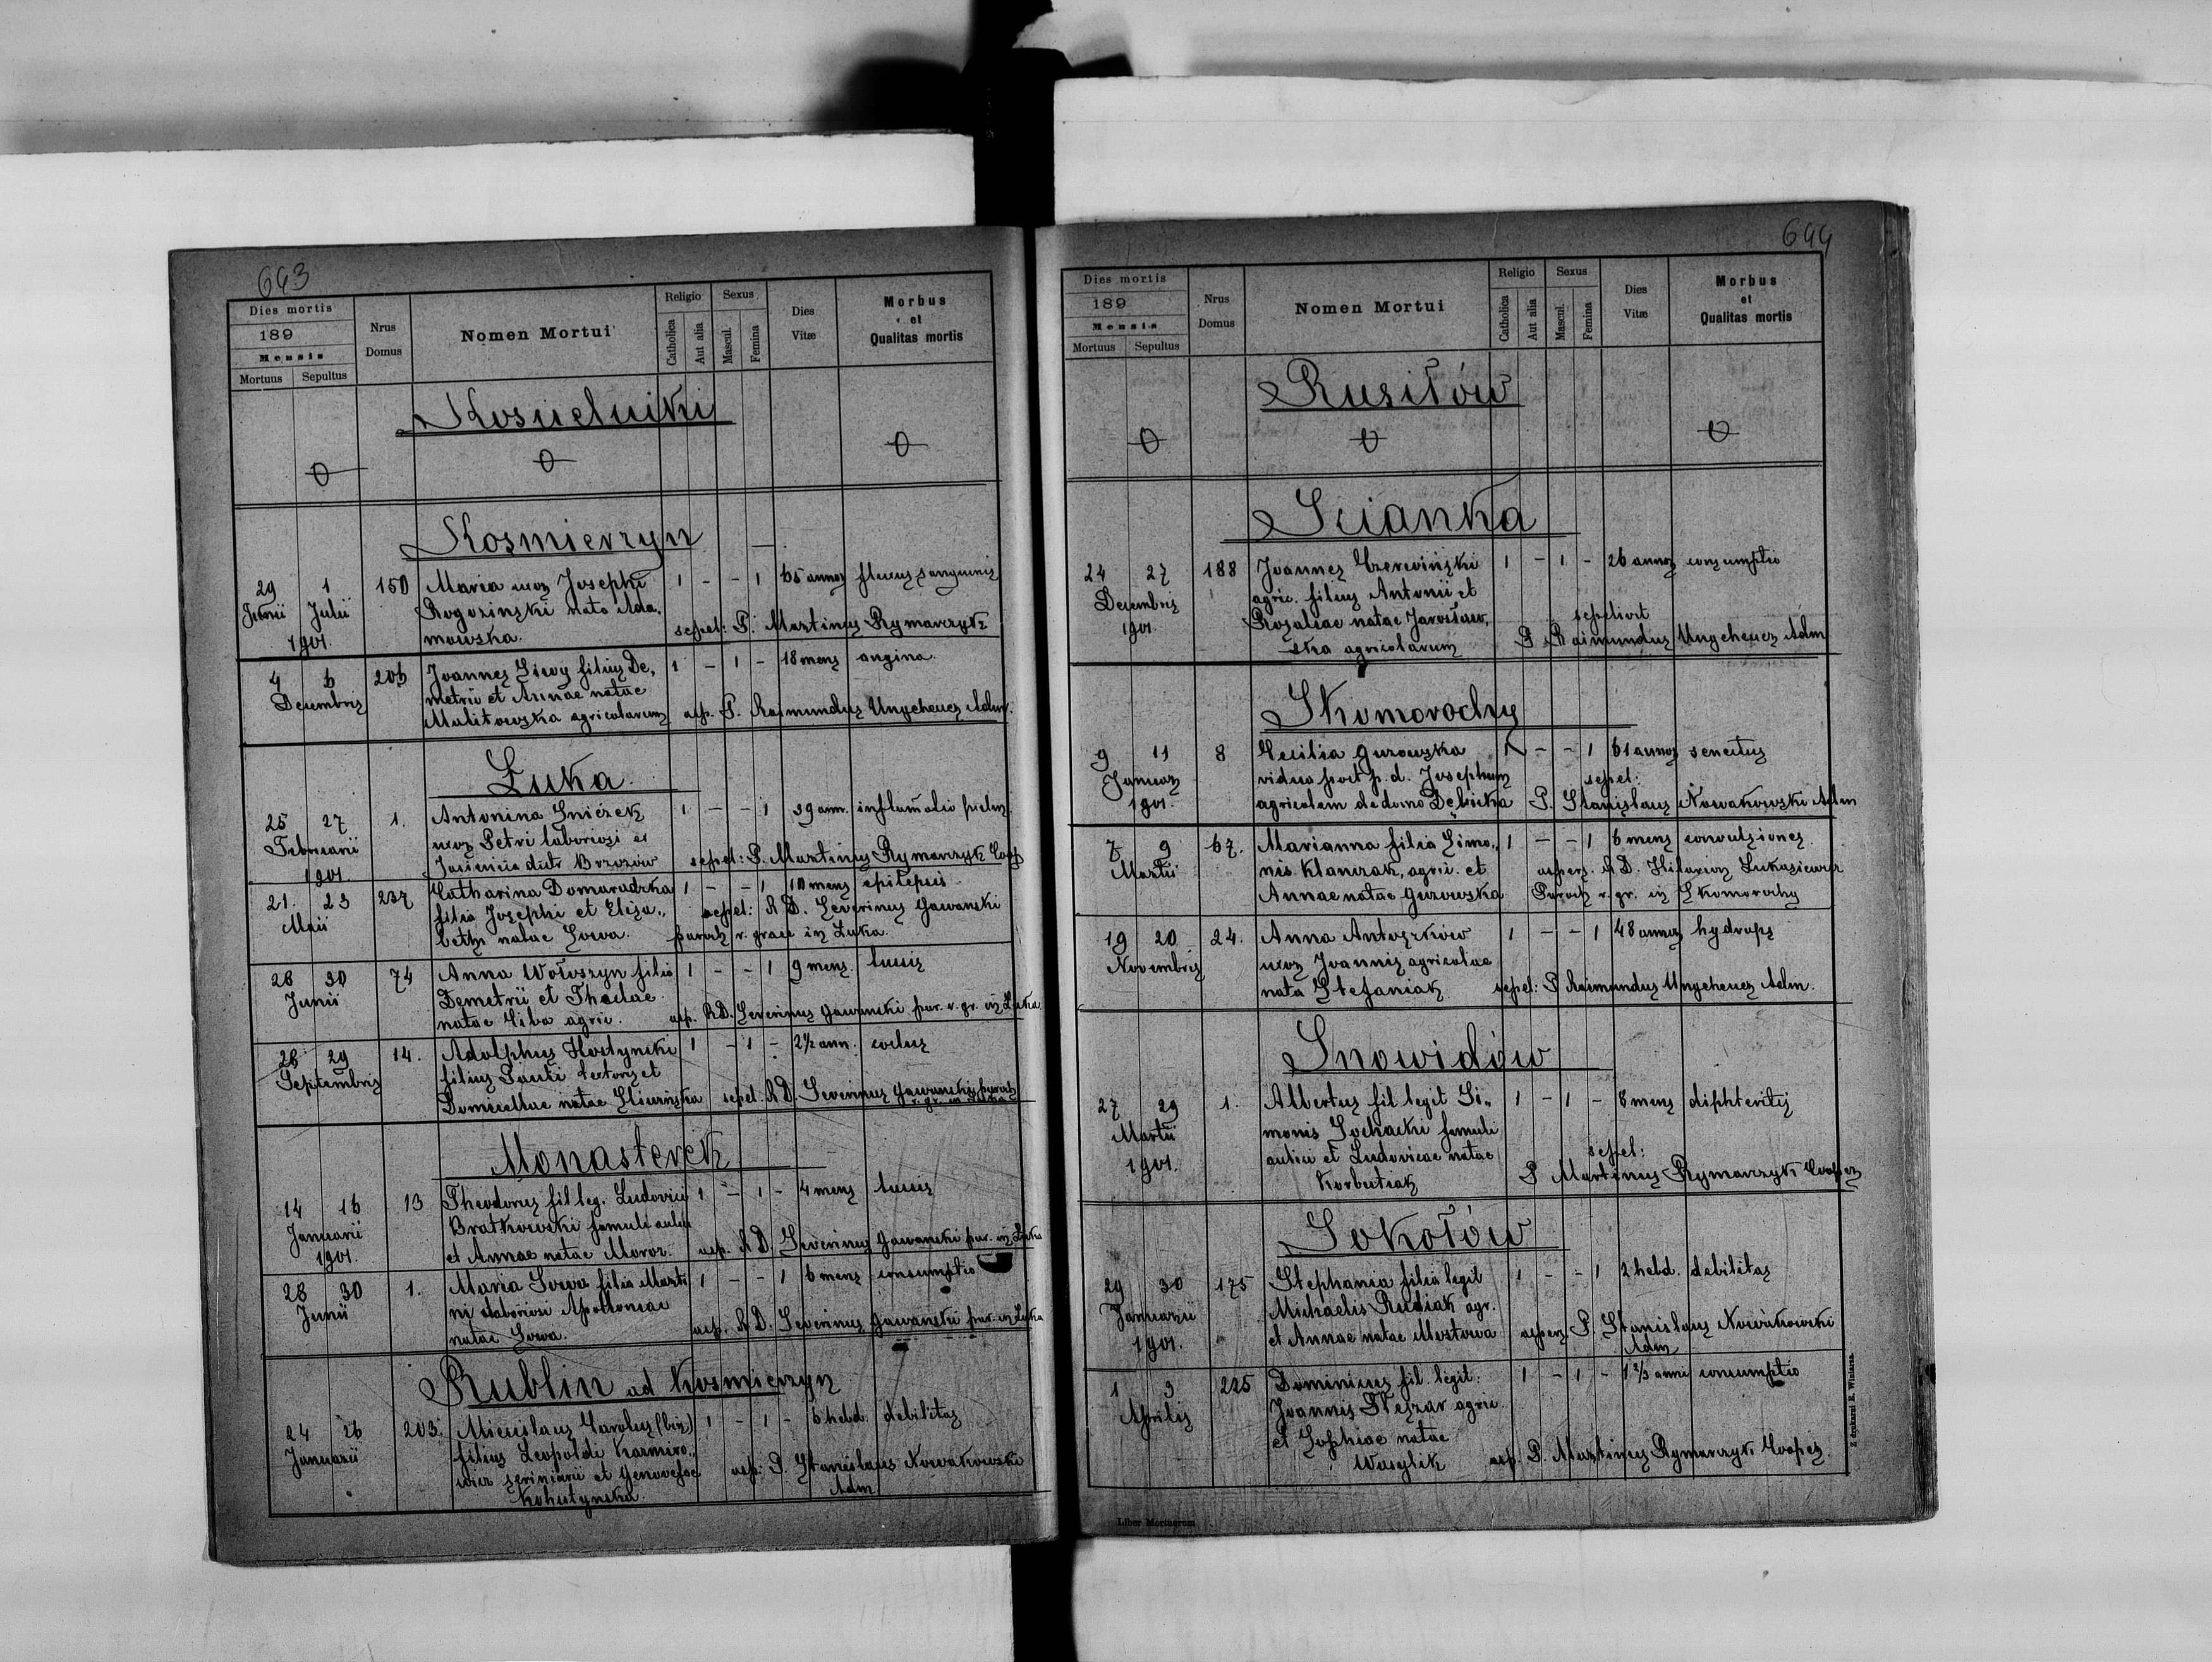 643
Dies mortis
189
Mensis
Mortuus Sepultus
Nrus Domus
Nomen Mortui
Religio
Catholica
Aut alia
Sexus
Mascul.
Femina
Dies Vitæ
Morbus et Qualitas mortis
Kosmierzyn
29 1 150 Maria uxor Josephi 1 - - 1 65 annor fluxus sanguinis
Junii Julii Rogozinski nata Ada,
1901. mowska. sepel: P. Martinus Rymarczyk
4 6 206 Joannes Siwy filius De, 1 - 1 - 18 mens angina
Decembris metrii et Annae natae
agricolarum asp. P. Raimundus Ungeheuer Adm.
Łuka
25 27 1. Antonina 1 - - 1 39 ann.
Februarii uxor Petri laboriosi
1901. sepel: P. Martinus Rymarczyk Coop
21. 23 237 Catharina Domaradzka 1 - - 1 10 mens epilepsis
Maii filia Josephi et Elisa,, sepel: R D. Severinus Gawanski
beth natae Sowa. paroch r. graec in Łuka.
28 30 74 Anna Wołoszyn filia 1 - - 1 9 mens. tussis
Junii Demetrii et Theclae
natae agric. asp. R D. Severinus Gawanski par. r. gr. in Łuka
28 29 14. Adolphus Hostynski 1 - 1 - 2½ ann.
Septembris filius Pauli et
natae sepel. R D. Severinus Gawanski paroch
r. gr. in Łuka
Monasterek
14 16 13 Theodorus fil leg. Ludovici 1 - 1 - 4 mens tussis
Januarii Bratkowski famuli aulici
1901. et Annae natae Moroz. asp. R D. Severinus Gawanski par. in Łuka
28 30 1. Maria Sowa filia Marti 1 - - 1 6 mens consumptio
Junii ni laboriosi Apolloniae
natae Sowa. asp. R D. Severinus Gawanski par. in Łuka
Rublin ad Kosmierzyn
24 26 203. Carolus (bin) 1 - 1 - 6 hebd. debilitas
Januarii filius Leopoldi Kazmiro,,
wicz et Genovefae asp: P. Stanislaus Nowakowski
Kohutynska. Adm
644
Dies mortis
189
Mensis
Mortuus Sepultus
Nrus Domus
Nomen Mortui
Religio
Catholica
Aut alia
Sexus
Mascul.
Femina
Dies Vitæ
Morbus et Qualitas mortis
Rusiłów
Scianka
24 27 188 Joannes Czerwiński 1 - 1 - 26 annor consumptio
Decembris agric. filius Antonii et
1901. Rosaliae natae Jarosław, sepelivit
ska agricolarum P Raimundus Ungeheuer Adm
Skomorochy
9 11 8 Cecilia Guzowska 1 - - 1 61 annor senectus
Januar vidua post p. d. Josephum sepel:
1901. agricolam de domo Dębicka P. Stanislaus Nowakowski Adm
7 9 67. Marianna filia Simo,, 1 - - 1 6 mens convulsiones
Martii nis Klamzak, agric. et aspers. R D. Hilarion Łukasiewicz
Annae natae Guzowska Paroch r. gr. in Skomorochy
19 20 24. Anna Antoszków 1 - - 1 48 annor hydrops
Novembris uxor Joannis agricolae
nata Stefaniak sepel: P Raimundus Ungeheuer Adm.
Snowidów
27 29 1. Albertus fil legit Si,, 1 - 1 - 8 mens diphteritis
Martii monis Sochacki famuli
1901. aulici et Ludovicae natae sepel:
Korbutiak P Martinus Rymarczyk Cooper
Sokołów
29 30 175 Stephania filia legit 1 - - 1 2 hebd. debilitas
Januarii Michaelis Rudiak agr.
1901. et Annae natae Mostowa aspers P. Stanislaus Nowakowski
Adm
1 3 225 Dominicus fil. legit. 1 - 1 - 1 2/3 anni consumptio
Aprilis Joannis agric
et Sophiae natae
Wasylik asp. P. Martinus Rymarczyk Cooper
Liber Mortuorum
Z drukarni E. Winiarza.